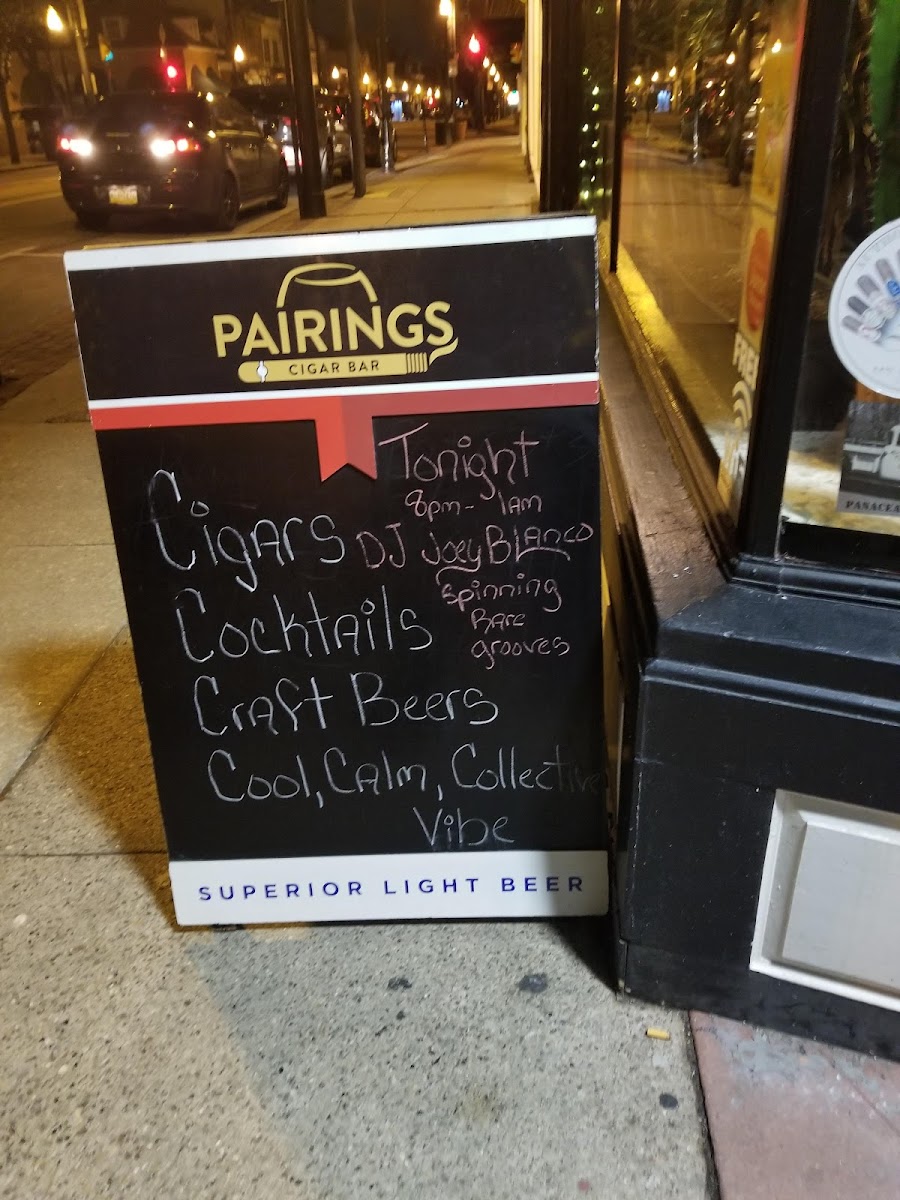 PAIRINGS
CIGAR BAR
Tonight
8pm - 1am
DJ Joey Blanco
Spinning
Rare
grooves
Cigars
Cocktails
Craft Beers
Cool, Calm, Collective
Vibe
SUPERIOR LIGHT BEER
FREE
PANACEA